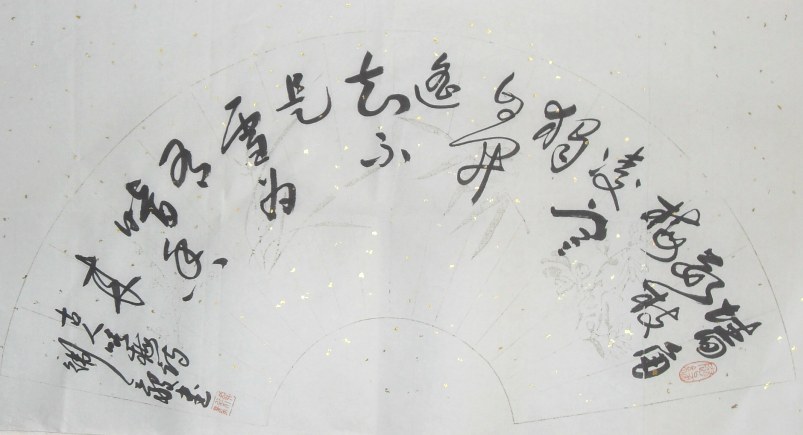 墙角
数枝
梅
凌寒
独
自开
遥
知不
是
雪为
有
暗香
来
古人咏梅诗